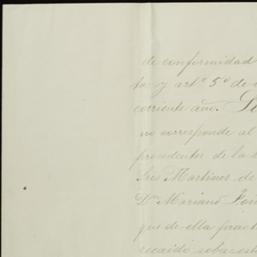 de conformidad
to y artº 5º de
corriente año.
no corresponde al
procedentes de la
Martinez de
Dn Mariano
que de ellas
recaido sobre